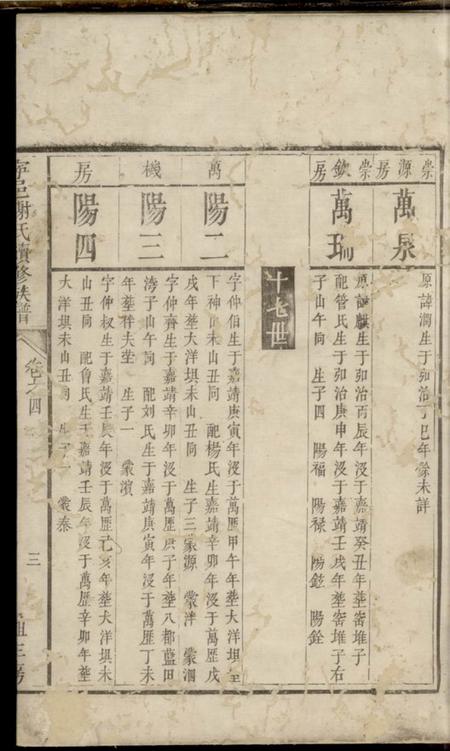 崇源房
萬泉
原諱潤生于弘治丁巳年餘未詳
崇欽房
萬珊
原諱麒生于弘治丙辰年沒于嘉靖癸丑年塟窑堆子
配管氏生于弘治庚申年沒于嘉靖壬戌年塟窑堆子右
子山午向 生子四 陽福 陽祿 陽 陽銓
十七世
萬機房
陽二
字仲伯生于嘉靖庚寅年沒于萬歷甲午年塟大洋垻
下神山未丑向 配楊氏生嘉靖辛卯年沒于萬歷戊
戌年塟大洋垻未山丑向 生子三 蒙源 蒙洋 蒙泗
陽三
字仲齊生于嘉靖辛卯年沒于萬歷庚子年塟八都藍田
湾子山午向 配刘氏生于嘉靖庚寅年沒于萬歷丁未
年塟祥夫塋 生子一 蒙濱
陽四
字仲权生于嘉靖壬辰年沒于萬歷己亥年塟大洋垻未
山丑向 配魯氏生于嘉靖壬辰年沒于萬歷辛卯年塟
大洋垻未山丑向 生子一 蒙泰
寧邑謝氏續修族譜
卷之四
三